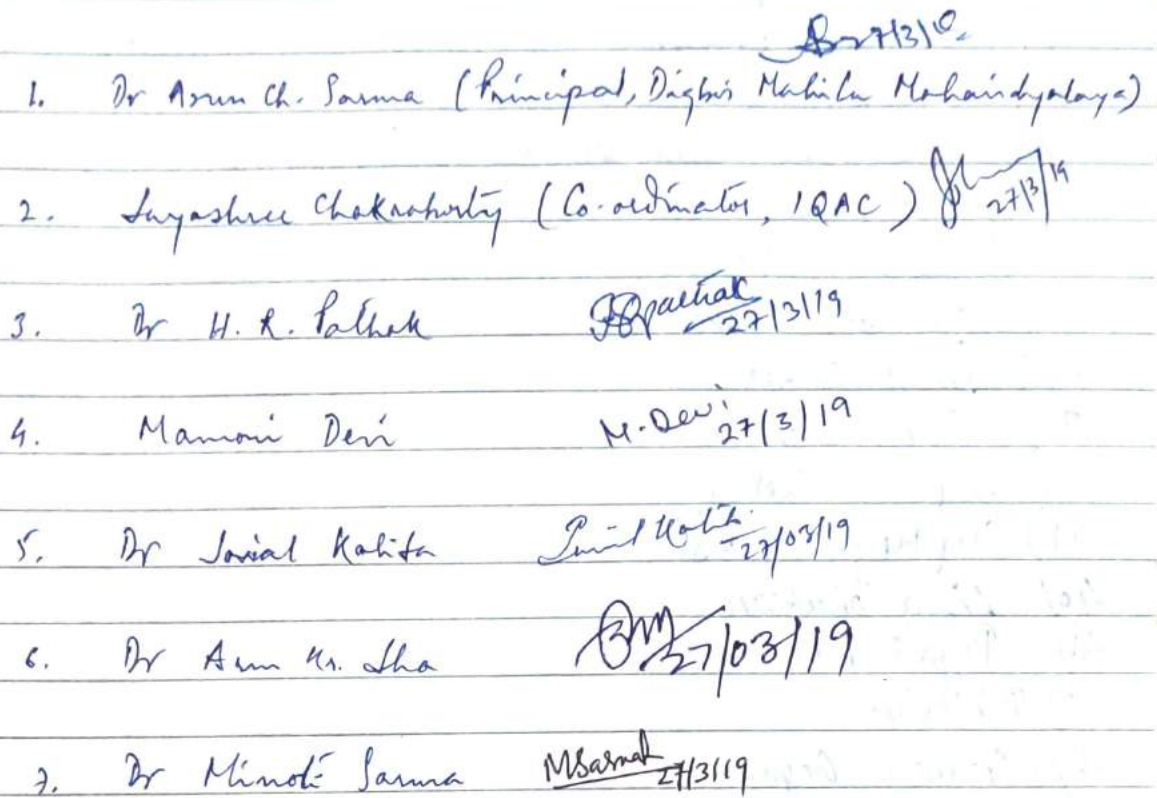 27/3/19
1. Dr Arun Ch. Sarma (Principal, Digboi Mahila Mahavidyalaya)
2. Jayashree Chakraborty (Co-ordinator, IQAC) 27/3/19
3. Dr H. R. Pathak Pathak 27/3/19
4. Mamoni Devi M. Devi 27/3/19
5. Dr Kalita Kalita 27/03/19
6. Dr Arun Kr. Jha 27/03/19
7. Dr Minoti Sarma MSarmah 27/3/19